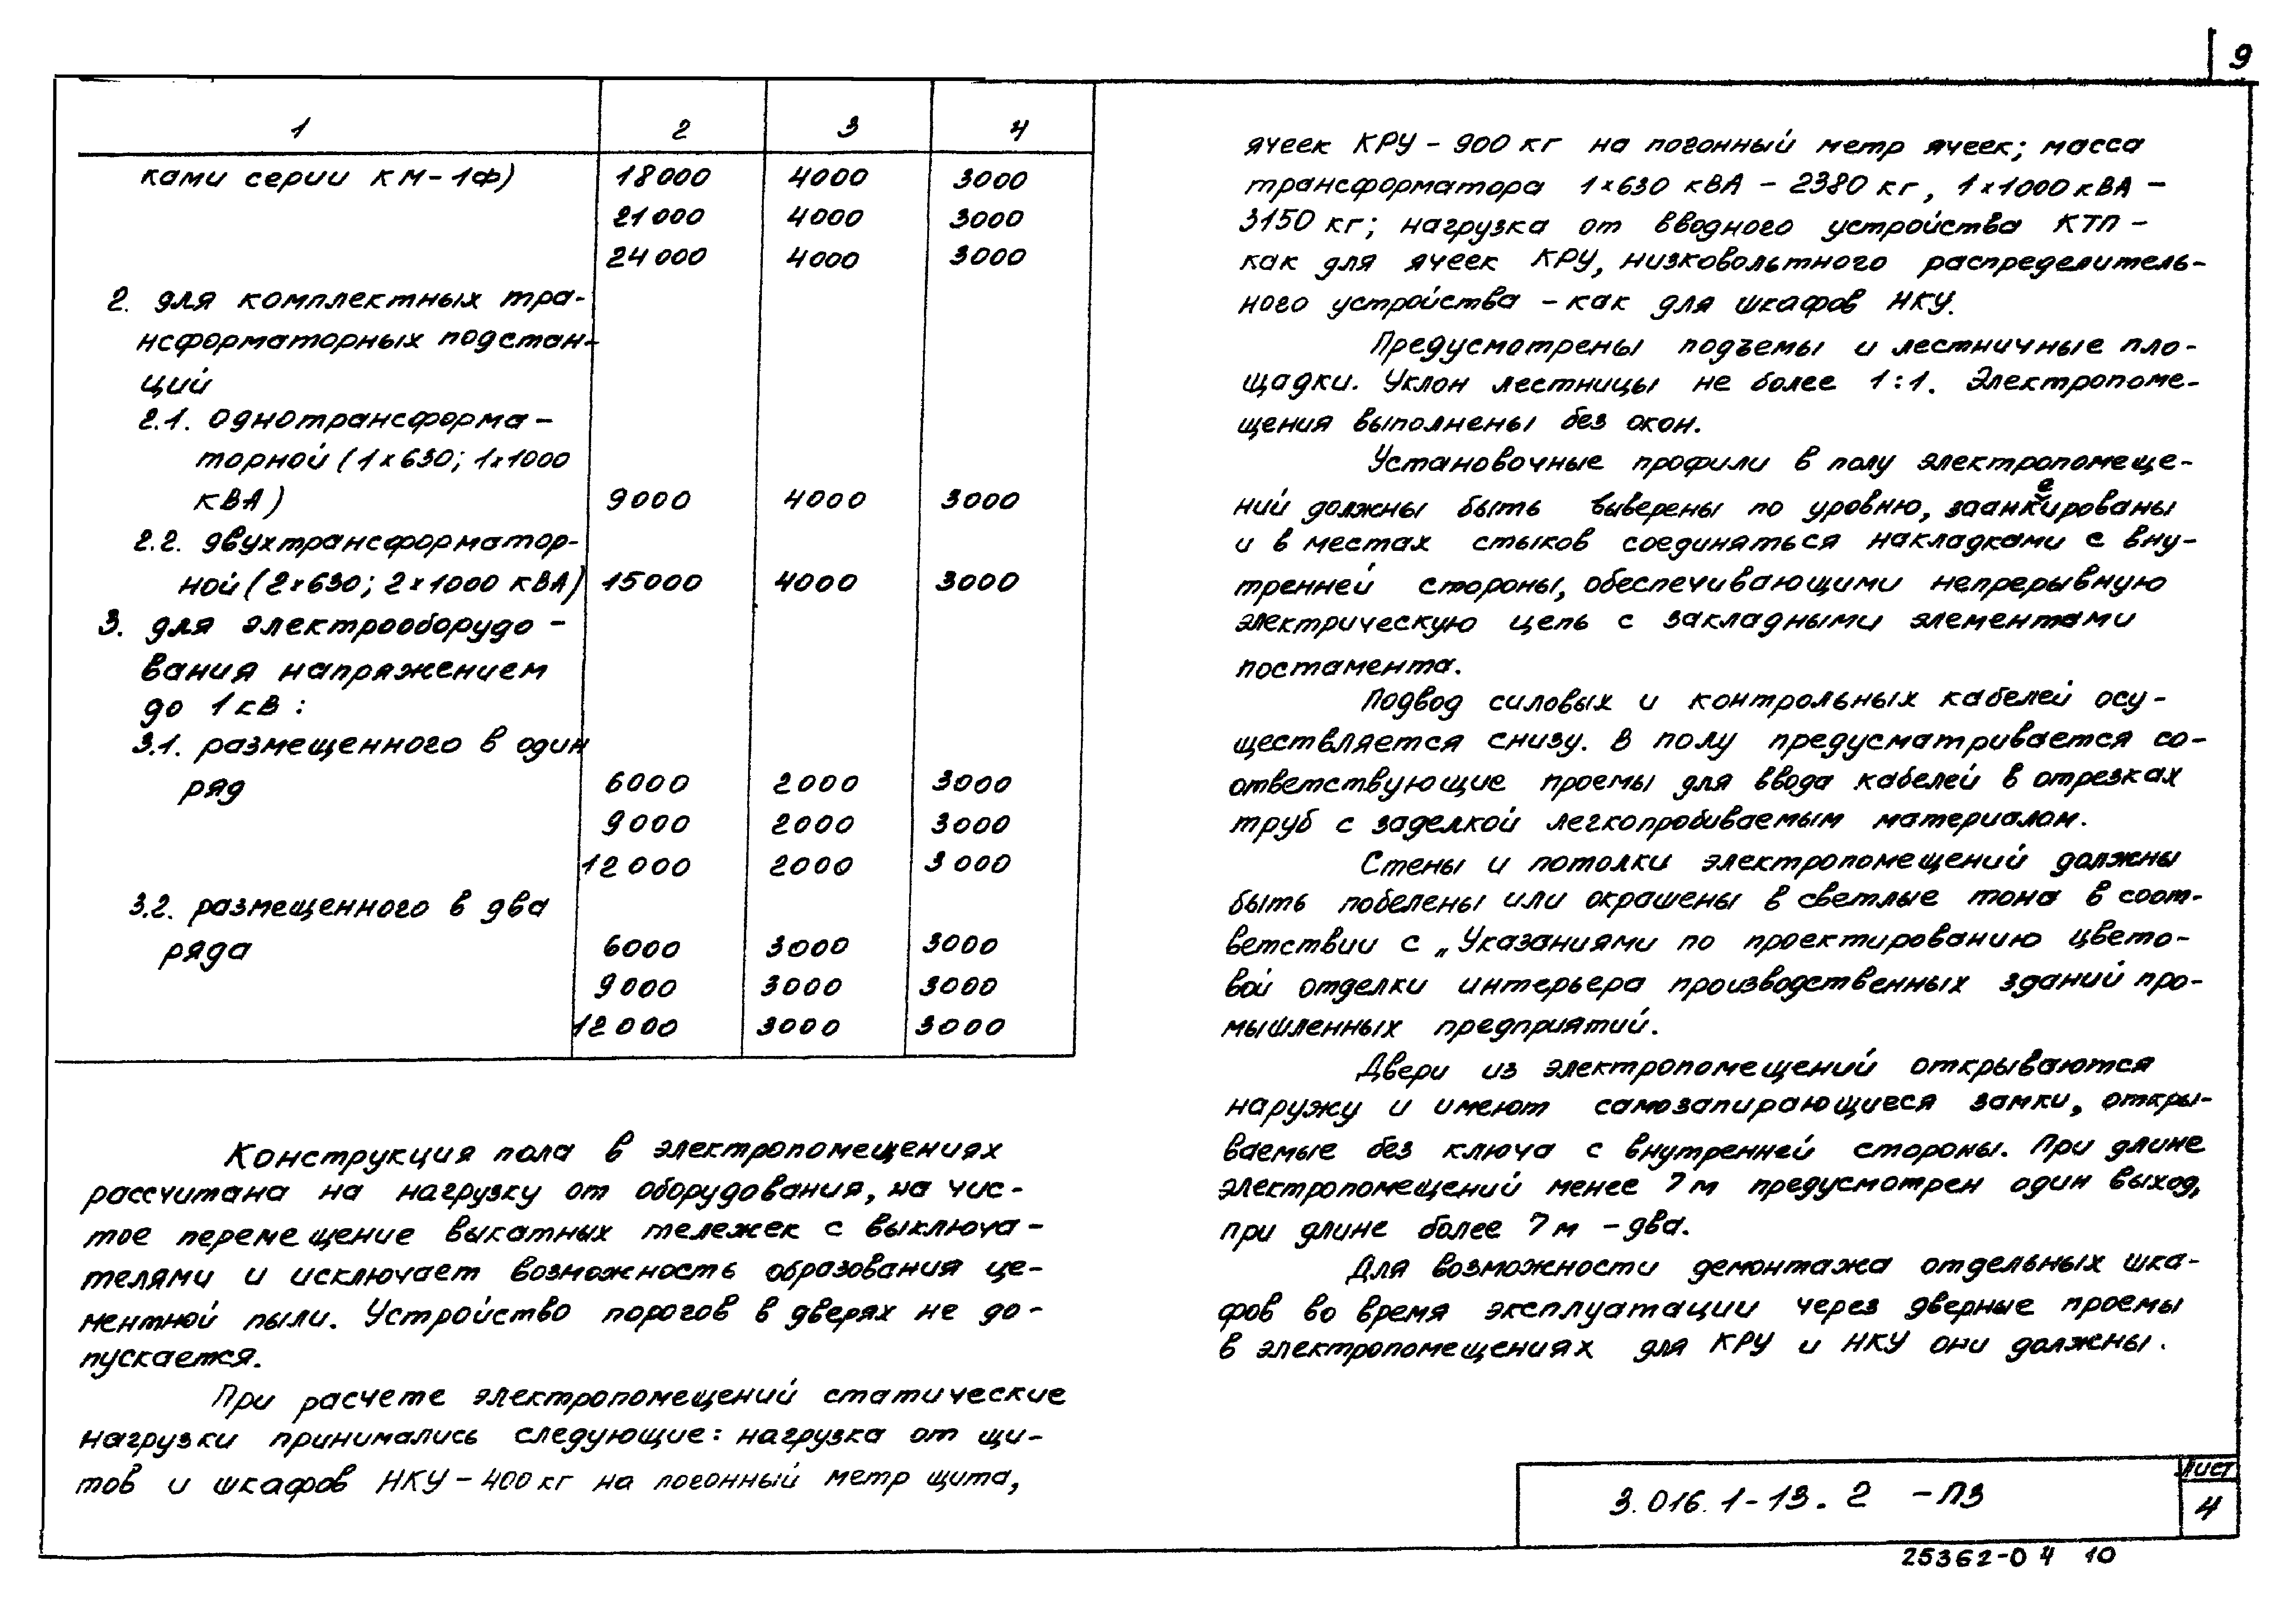 9
1 2 3 4
ками серии КМ-1Ф) 18000 4000 3000
21000 4000 3000
24000 4000 3000
2. для комплектных тра-
нсформаторных подстан-
ций
2.1. однотрансформа-
торной (1×630; 1×1000
кВА) 9000 4000 3000
2.2. двухтрансформатор-
ной (2×630; 2×1000 кВА) 15000 4000 3000
3. для электрооборудо-
вания напряжением
до 1кВ:
3.1. размещенного в один
ряд 6000 2000 3000
9000 2000 3000
12000 2000 3000
3.2. размещенного в два
ряда 6000 3000 3000
9000 3000 3000
12000 3000 3000
Конструкция пола в электропомещениях
рассчитана на нагрузку от оборудования, на чис-
тое перемещение выкатных тележек с выключа-
телями и исключает возможность образования це-
ментной пыли. Устройство порогов в дверях не до-
пускается.
При расчете электропомещений статические
нагрузки принимались следующие: нагрузка от щи-
тов и шкафов НКУ-400кг на погонный метр щита,
ячеек КРУ - 900 кг на погонный метр ячеек; масса
трансформатора 1×630 кВА - 2380 кг, 1×1000 кВА -
3150 кг; нагрузка от вводного устройства КТП -
как для ячеек КРУ, низковольтного распределитель-
ного устройства - как для шкафов НКУ.
Предусмотрены подъемы и лестничные пло-
щадки. Уклон лестницы не более 1:1. Электропоме-
щения выполнены без окон.
Установочные профили в полу электропомеще-
ний должны быть выверены по уровню, заанкерированы
и в местах стыков соединяться накладками с вну-
тренней стороны, обеспечивающими непрерывную
электрическую цепь с закладными элементами
постамента.
Подвод силовых и контрольных кабелей осу-
ществляется снизу. В полу предусматривается со-
ответствующие проемы для ввода кабелей в отрезках
труб с заделкой легкопробиваемым материалом.
Стены и потолки электропомещений должны
быть побелены или окрашены в светлые тона в соот-
ветствии с „Указаниями по проектированию цвето-
вой отделки интерьера производственных зданий про-
мышленных предприятий.
Двери из электропомещений открываются
наружу и имеют самозапирающиеся замки, откры-
ваемые без ключа с внутренней стороны. При длине
электропомещений менее 7м предусмотрен один выход,
при длине более 7м - два.
Для возможности демонтажа отдельных шка-
фов во время эксплуатации через дверные проемы
в электропомещениях для КРУ и НКУ они должны.
3.016.1-13.2 -ПЗ
Лист
4
25362-04 10